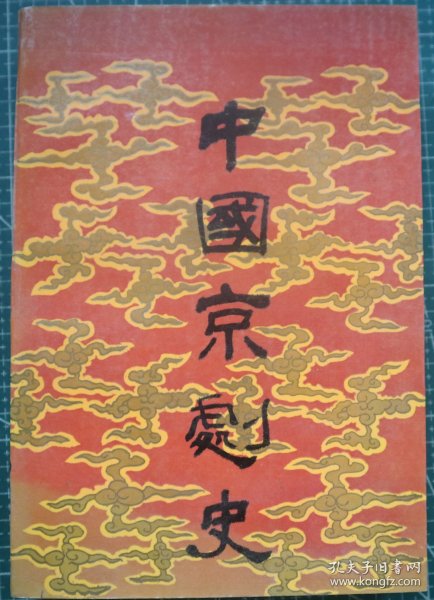 中國京劇史
孔夫子旧书网
www.kongfz.com